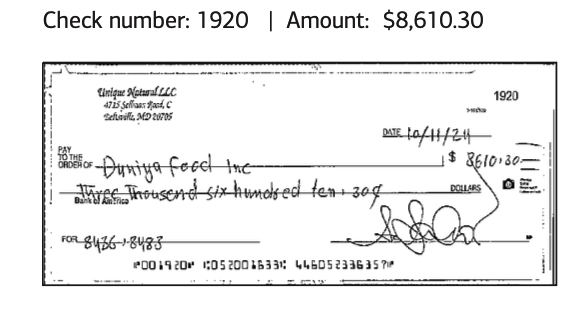 Check number: 1920 | Amount: $8,610.30
Unique Natural LLC
1920
4715 Sellman Road, C
Beltsville, MD 20705
DATE 10/11/24
PAY
TO THE
ORDER OF Duniya Food Inc $ 8610.30
Three Thousand six hundred ten 30 DOLLARS
Bank of America
FOR 8436-8483
⑈001920⑈ ⑆052001633⑆ 446052336357⑈